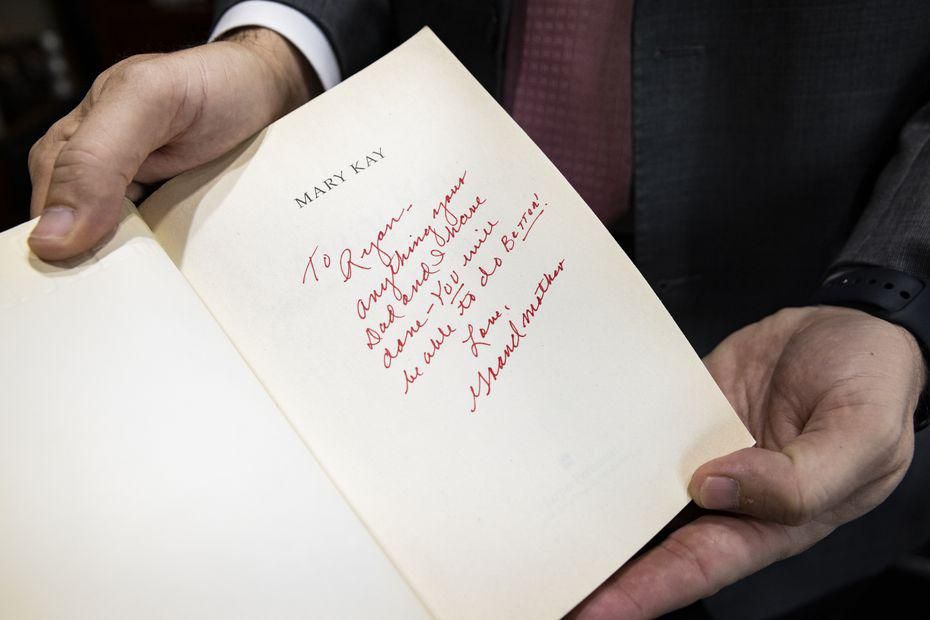 MARY KAY
To Ryan-
anything your
Dad and I have
done - YOU will
be able to do BETTER!
Love,
Grandmother